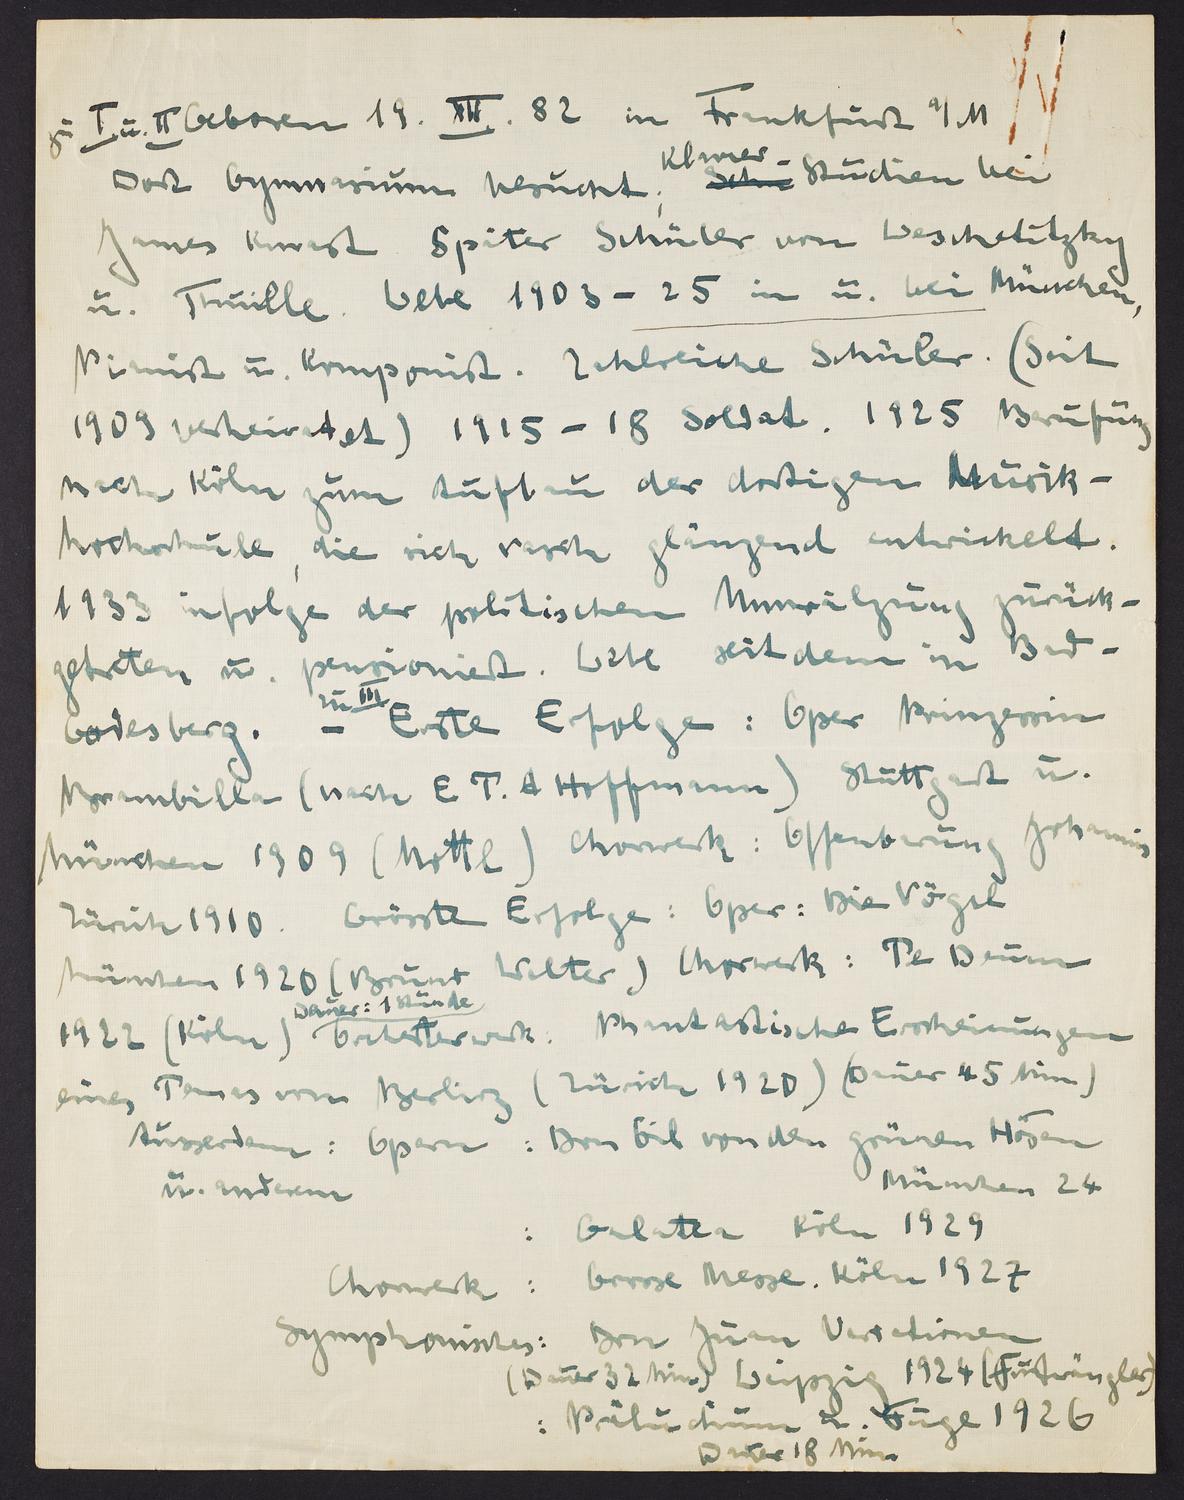 zu I u. II Geboren 19. XII. 82 in Frankfurt a/M
Dort Gymnasium besucht, Klavier- Studien bei
James Kwast Später Schüler von Leschetitzky
u. Thuille. Lebte 1903 – 25 in u. bei München,
Pianist u. Komponist. Zahlreiche Schüler. (Seit
1909 verheiratet) 1915 – 18 Soldat. 1925 Berufung
nach Köln zum Aufbau der dortigen Musik-
hochschule, die sich rasch glänzend entwickelt.
1933 infolge der politischen Umwälzung zurück-
getreten u. pensioniert. Lebe seitdem in Bad-
Godesberg. – zu III Erste Erfolge: Oper Prinzessin
Brambilla (nach E. T. A Hoffmann) Stuttgart u.
München 1909 (Mottl) Chorwerk: Offenbarung Johannis
Zürich 1910. Grösste Erfolge: Oper: Die Vögel
München 1920 (Bruno Walter) Chorwerk: Te Deum
Dauer: 1 Stunde
1922 (Köln) Orchesterwerk: Phantastische Erscheinungen
eines Temas von Berlioz (Zürich 1920) (Dauer 45 Min)
Ausserdem: Opern: Don Gil von den grünen Hosen
u. anderem München 24
: Galatea Köln 1929
Chorwerk: Grosse Messe. Köln 1927
Symphonisches: Don Juan Variationen
(Dauer 32 Min) Leipzig 1924 (Furtwängler)
: Präludium u. Fuge 1926
Dauer 18 Min